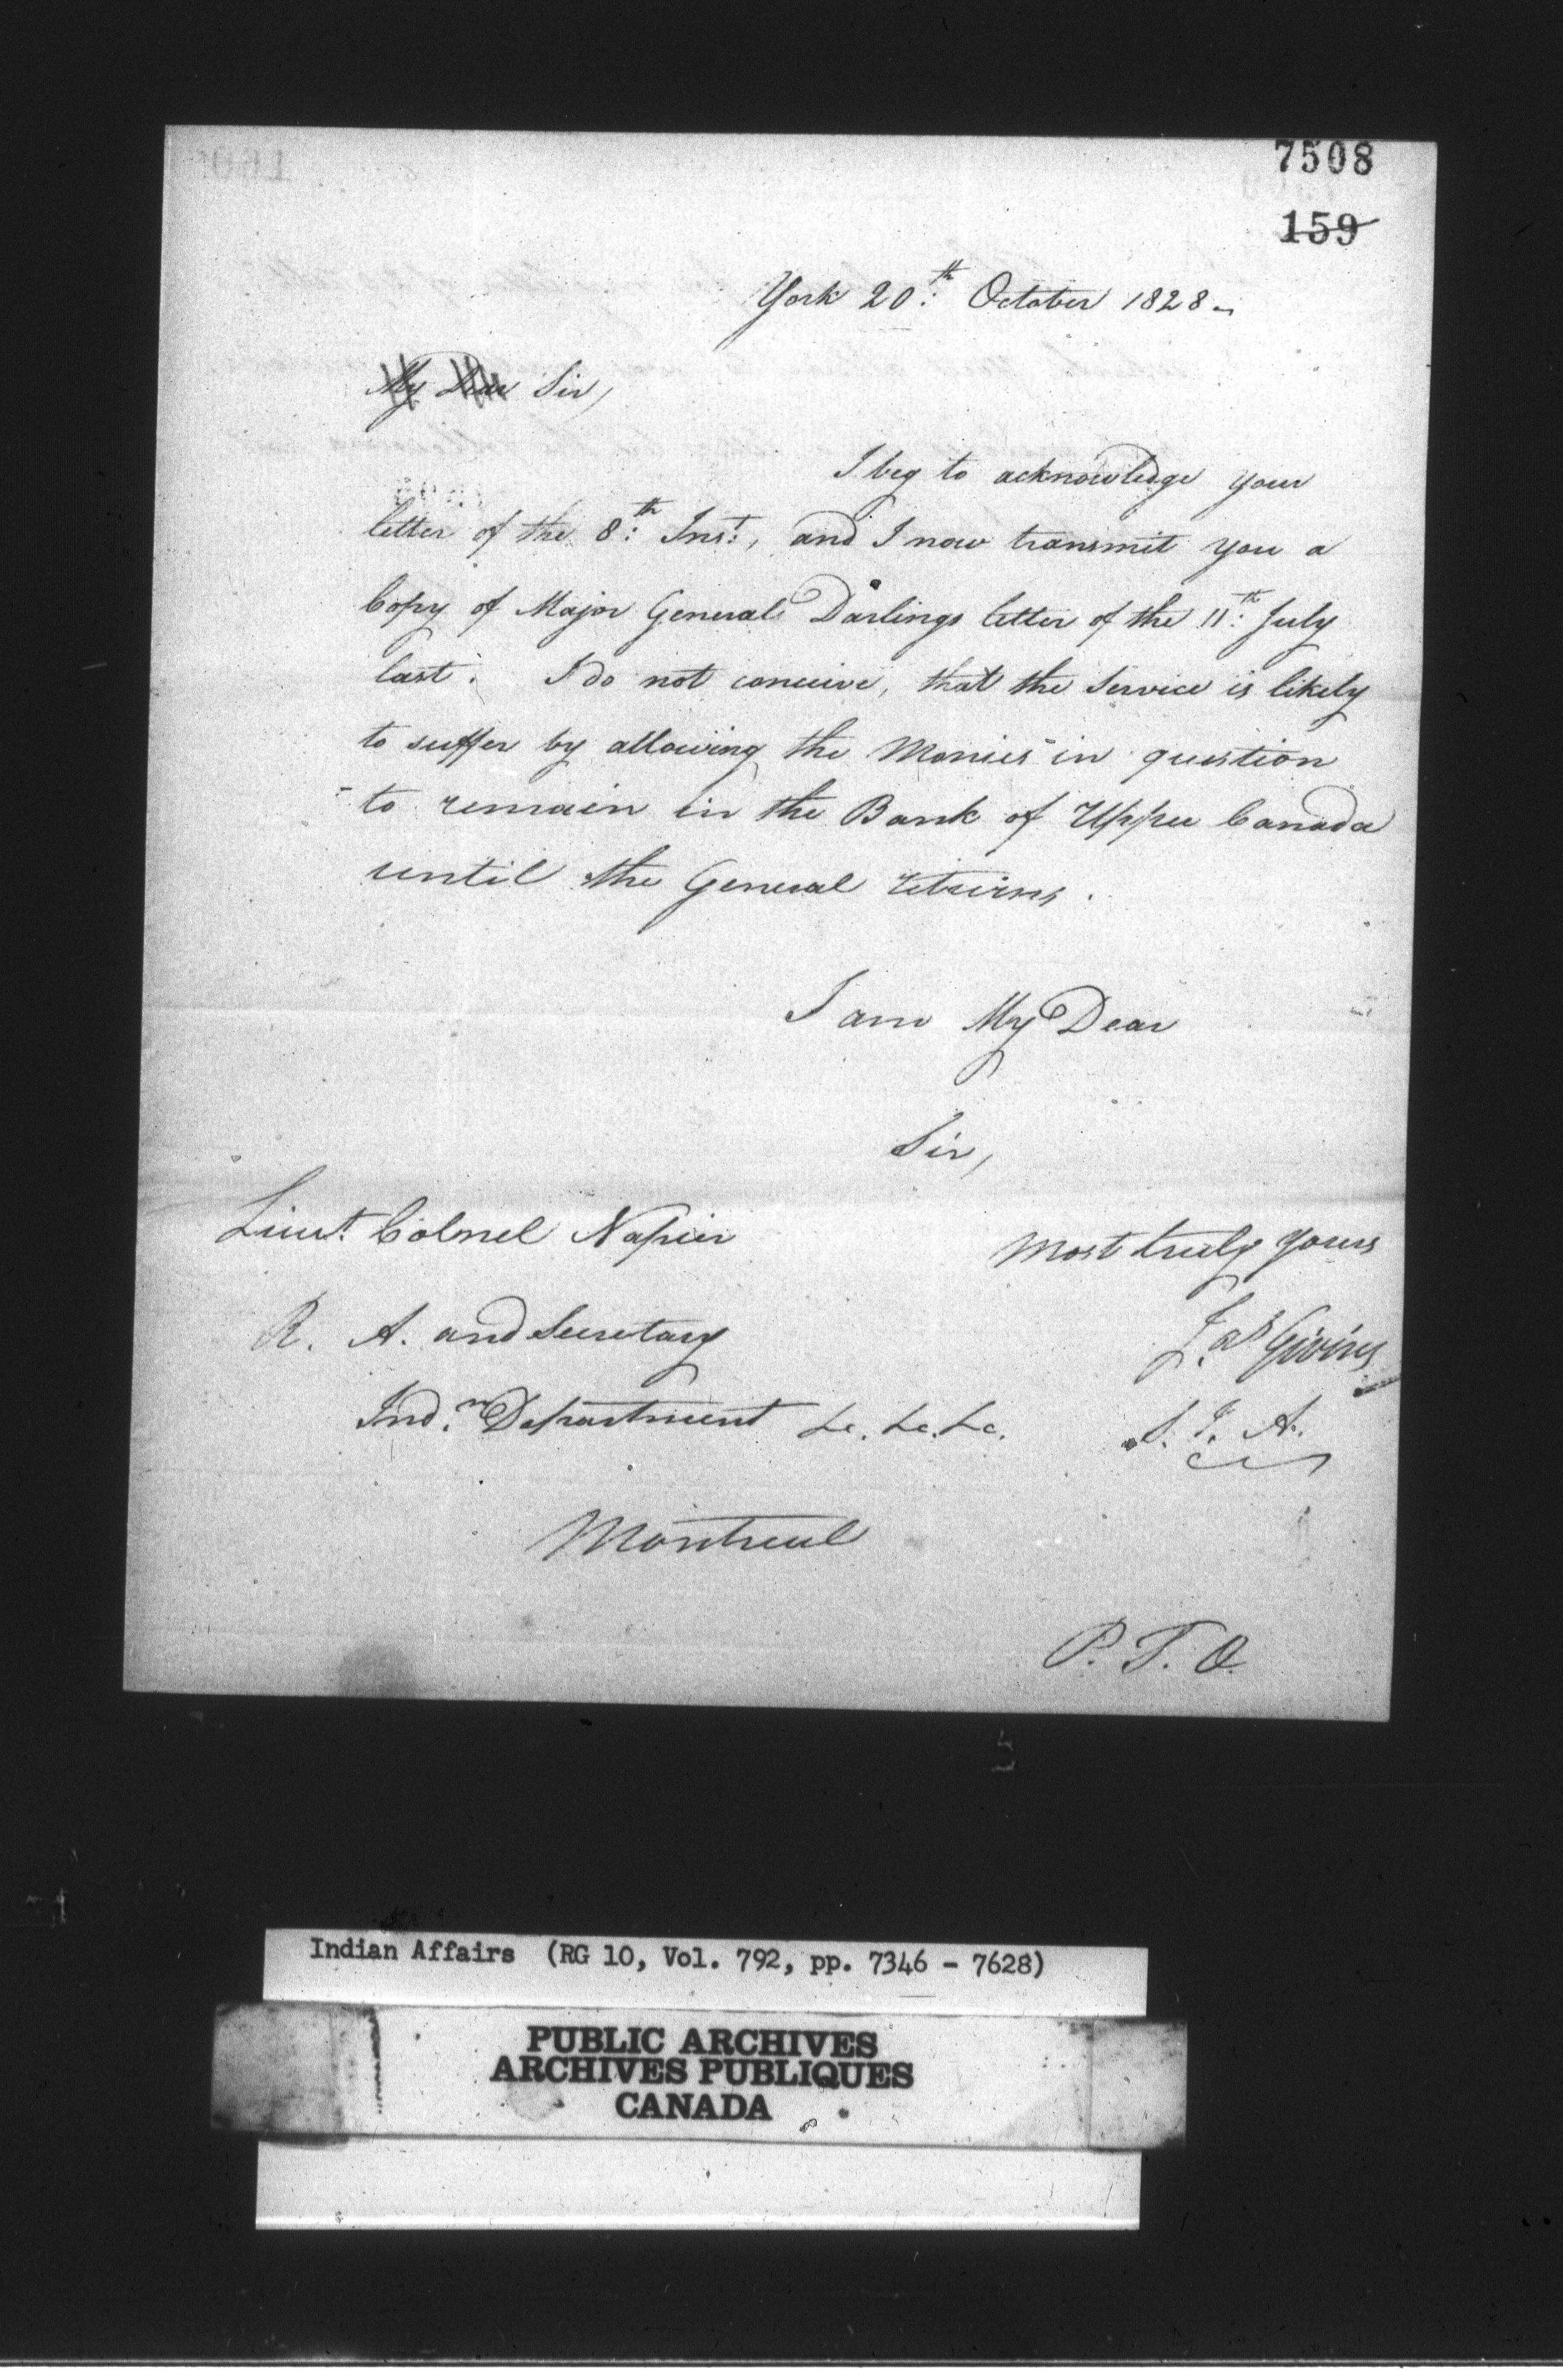 7508
159
York 20th October 1828
My Dear Sir,
I beg to acknowledge your
letter of the 8th Inst, and I now transmit you a
Copy of Major General Darlings letter of the 11th July
last. I do not conceive, that the Service is likely
to suffer by allowing the Monies in question
to remain in the Bank of Upper Canada
until the General returns.
I am My Dear
Sir,
Most truly yours
Jas Givins
S. I. A.
Lieut. Colonel Napier
R. A. and Secretary
Indn Department &c. &c. &c.
Montreal
P. T. O.
Indian Affairs (RG 10, Vol. 792, pp. 7346 - 7628)
PUBLIC ARCHIVES
ARCHIVES PUBLIQUES
CANADA